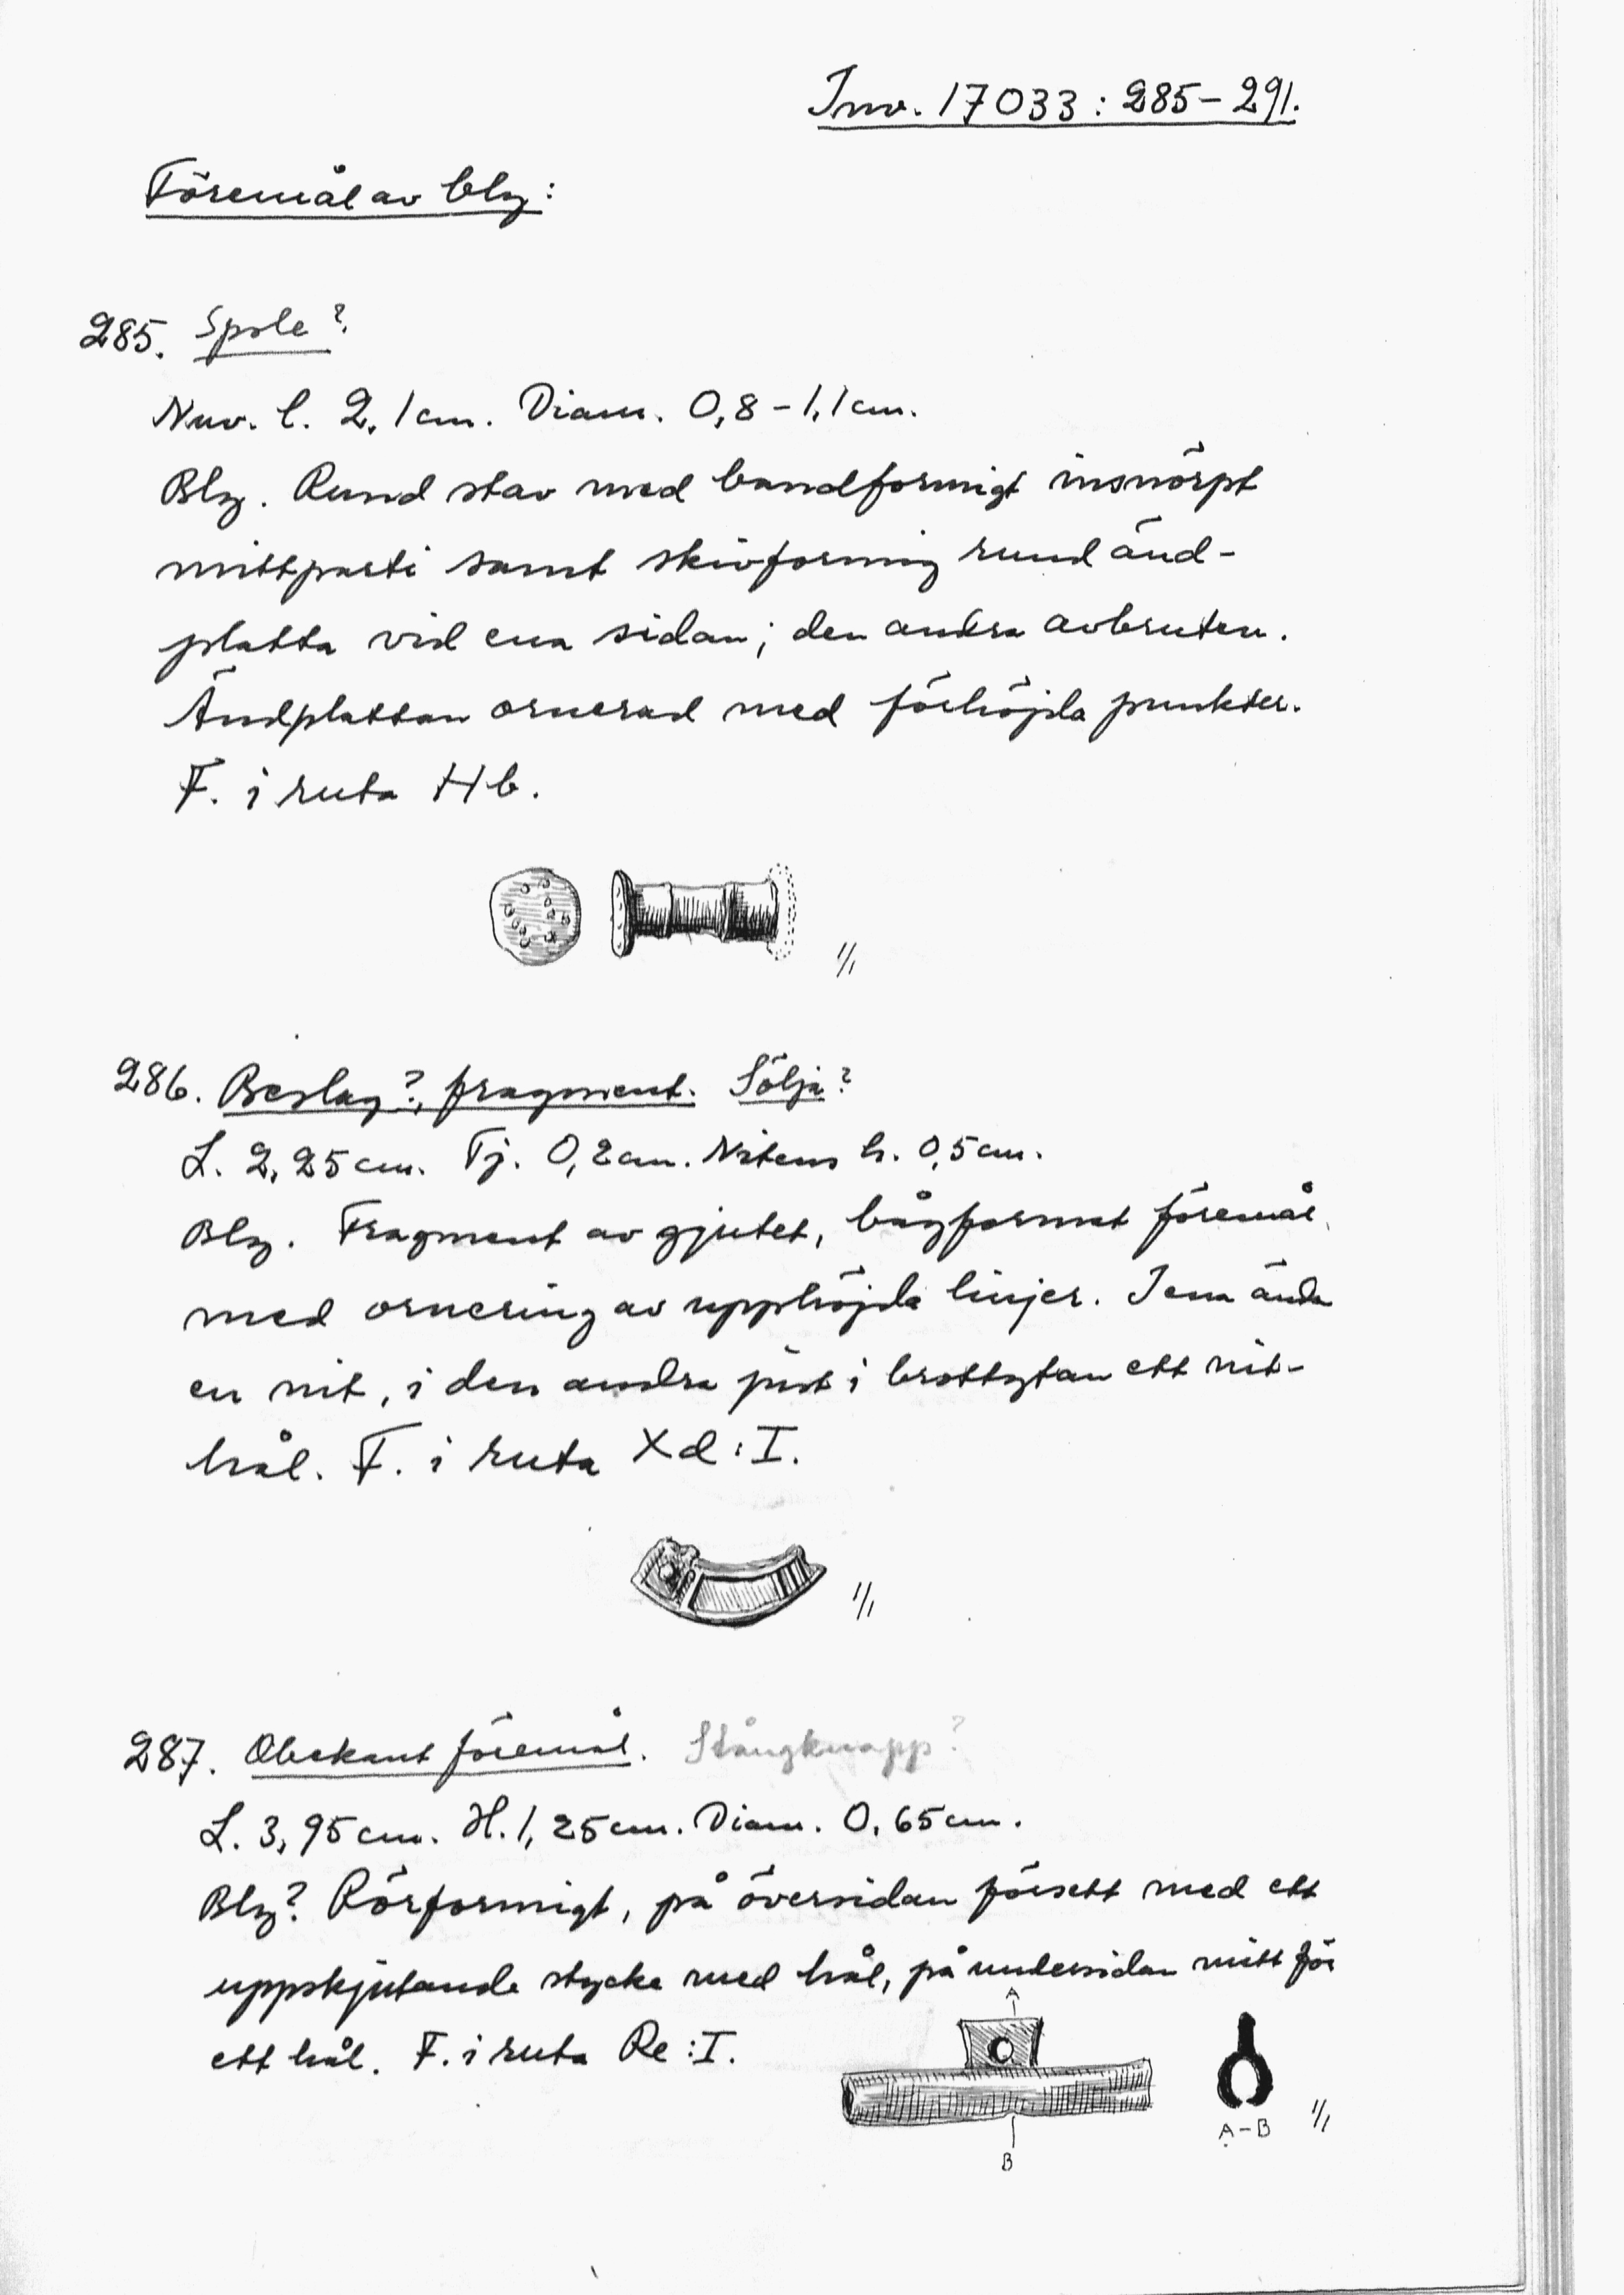 Inv. 17033: 285-291.
Föremål av bly:
285. Spole?
Nuv. l. 2,1 cm. Diam. 0,8-1,1 cm.
Bly. Rund stav med bandformigt insnörpt
mittparti samt skivformig rund änd-
platta vid ena sidan; den andra avbruten.
Ändplattan ornerad med förhöjda punkter.
F. i ruta Hb.
1/1
286. Beslag?, fragment. Sölja?
L. 2,25 cm. Tj. 0,2 cm. Nitens h. 0,5 cm.
Bly. Fragment av gjutet, bågformat föremål
med ornering av upphöjda linjer. I ena ända
en nit, i den andra just i brottytan ett nit-
hål. F. i ruta Xd:I.
1/1
287. Obekant föremål. Stångknapp?
L. 3,95 cm. H. 1,25 cm. Diam. 0,65 cm.
Bly? Rörformigt, på översidan försett med ett
uppskjutande stycke med hål, på undersidan mitt för
ett hål. F. i ruta Re:I.
A
B
A-B
1/1